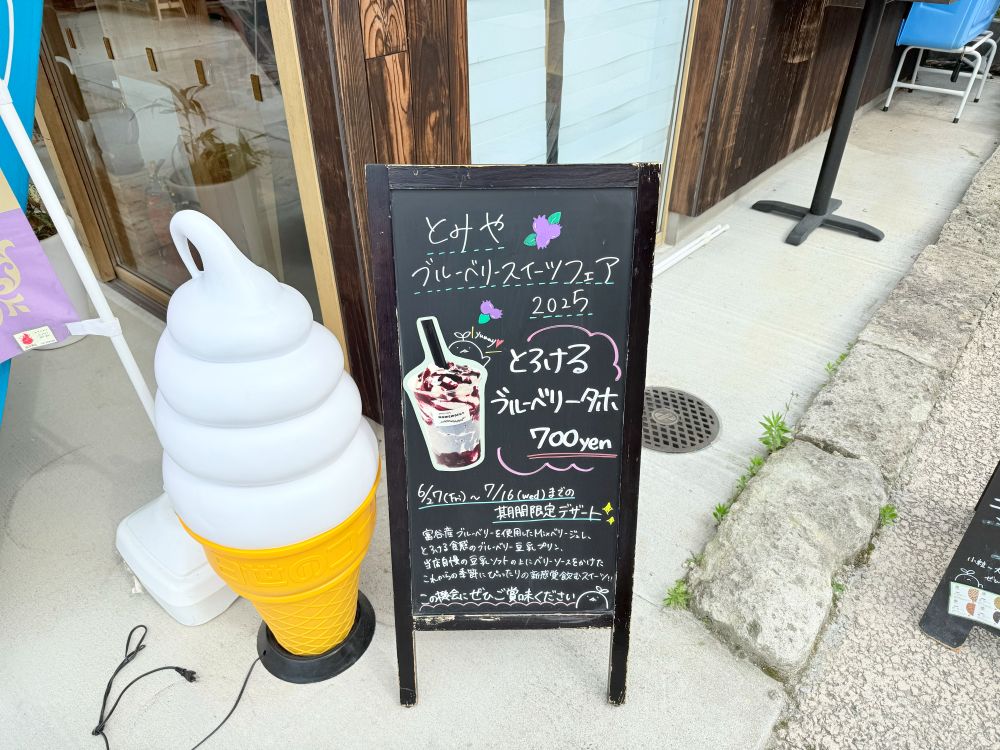 とみや
ブルーベリースイーツフェア
2025
yummy
とろける
ブルーベリータホ
700yen
6/27(Fri)～7/16(wed)までの
期間限定デザート
富谷産ブルーベリーを使用したMixベリージュレ、
とろける食感のブルーベリー豆乳プリン、
当店自慢の豆乳ソフトの上にベリーソースをかけた
これからの季節にぴったりの新感覚飲むスイーツ!!
この機会にぜひご賞味ください